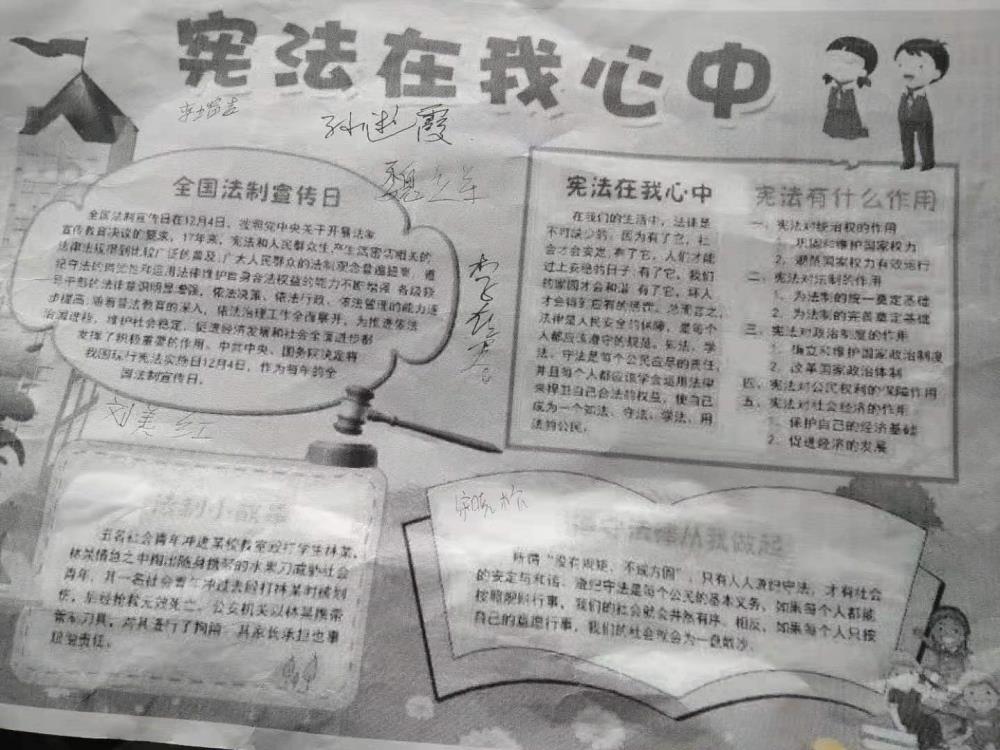 宪法在我心中
孙艳霞
全国法制宣传日
全国法制宣传日在12月4日，按照党中央关于开展法制
宣传教育决议的要求，17年来，宪法和人民群众生产生活密切相关的
法律法规得到比较广泛的普及，广大人民群众的法制观念普遍提高，遵
纪守法的自觉性和运用法律维护自身合法权益的能力不断增强 各级领
导干部的法律意识明显增强，依法决策、依法行政、依法管理的能力逐
步提高，随着普法教育的深入，依法治理工作全面展开，为推进依法
治国进程，维护社会稳定，促进经济发展和社会全面进步都
发挥了积极重要的作用。中共中央、国务院决定将
我国现行宪法实施日12月4日，作为每年的全
国法制宣传日。
刘美红
宪法在我心中
在我们的生活中，法律是
不可缺少的，因为有了它，社
会才会安定，有了它，人们才能
过上安稳的日子，有了它，我们
的家园才会和谐，有了它，坏人
才会得到应有的惩罚。总而言之，
法律是人民安全的保障，是每个
人都应该遵守的规范。知法、学
法、守法是每个公民应尽的责任，
并且每个人都应该学会运用法律
来捍卫自己合法的权益，使自己
成为一个知法、守法、学法、用
法的公民。
宪法有什么作用
一、宪法对统治权的作用
1、巩固和维护国家权力
2、避免国家权力有效运行
二、宪法对法制的作用
1、为法制的统一奠定基础
2、为法制的完善奠定基础
三、宪法对政治制度的作用
1、确立和维护国家政治制度
2、改革国家政治体制
四、宪法对公民权利的保障作用
五、宪法对社会经济的作用
1、保护自己的经济基础
2、促进经济的发展
法制小故事
五名社会青年冲进某校教室殴打学生林某，
林某情急之中掏出随身携带的水果刀威胁社会
青年，其一名社会青年冲过去殴打林某时被划
伤，后经抢救无效死亡。公安机关以林某携带
管制刀具，对其进行了拘留，其家长承担也事
赔偿责任。
遵守法律从我做起
所谓“没有规矩，不成方圆”，只有人人遵纪守法，才有社会
的安定与和谐。遵纪守法是每个公民的基本义务，如果每个人都能
按照规则行事，我们的社会就会井然有序，相反，如果每个人只按
自己的意愿行事，我们的社会就会为一盘散沙。